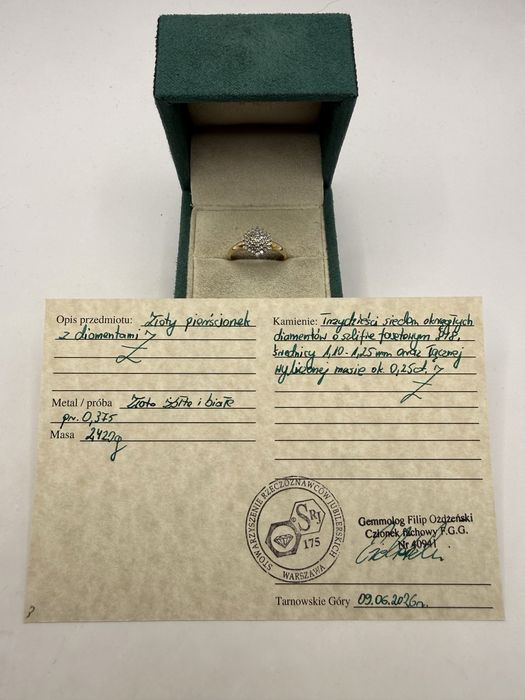 Opis przedmiotu: Złoty pierścionek
z diamentami
Metal / próba Złoto żółte i białe
pr. 0,375
Masa 2,427g
Kamienie: Trzydzieści siedem okrągłych
diamentów o szlifie fasetowym 8/8,
średnicy 1,10-1,25 mm oraz łącznej
wyliczonej masie ok. 0,25ct.
STOWARZYSZENIE RZECZOZNAWCÓW JUBILERSKICH
WARSZAWA
SRJ
175
Gemmolog Filip Ożdżeński
Członek fachowy F.G.G.
Nr 40941
Tarnowskie Góry 09.06.2026r.